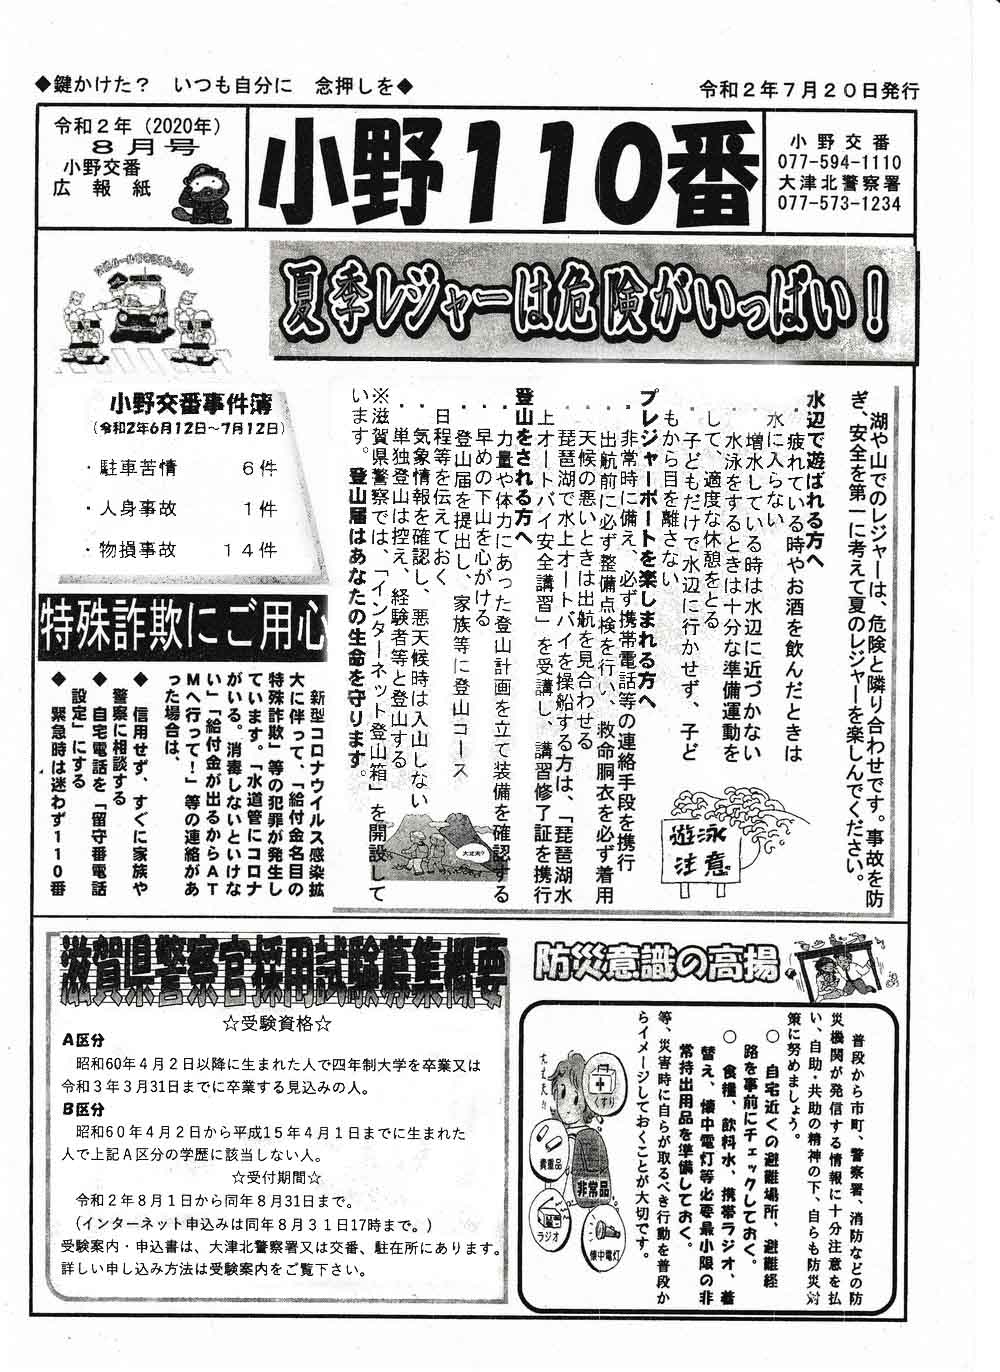 ◆鍵かけた？　いつも自分に　念押しを◆
令和２年７月２０日発行
令和２年（2020年）
８月号
小野交番
広報紙
小野１１０番
小野交番
077-594-1110
大津北警察署
077-573-1234
夏季レジャーは危険がいっぱい！
湖や山でのレジャーは、危険と隣り合わせです。事故を防
ぎ、安全を第一に考えて夏のレジャーを楽しんでください。
水辺で遊ばれる方へ
・疲れている時やお酒を飲んだときは
水に入らない
・増水している時は水辺に近づかない
・水泳をするときは十分な準備運動を
して、適度な休憩をとる
・子どもだけで水辺に行かせず、子ど
もから目を離さない
プレジャーボートを楽しまれる方へ
・非常時に備え、必ず携帯電話等の連絡手段を携行
・出航前に必ず整備点検を行い、救命胴衣を必ず着用
・天候の悪いときは出航を見合わせる
・琵琶湖で水上オートバイを操船する方は、「琵琶湖水
上オートバイ安全講習」を受講し、講習修了証を携行
登山をされる方へ
・力量や体力にあった登山計画を立て装備を確認する
・早めの下山を心がける
・登山届を提出し、家族等に登山コース
日程等を伝えておく
・気象情報を確認し、悪天候時は入山しない
・単独登山は控え、経験者等と登山する
※滋賀県警察では、「インターネット登山箱」を開設して
います。登山届はあなたの生命を守ります。
遊泳
注意
大丈夫？
小野交番事件簿
（令和2年6月12日～7月12日）
・駐車苦情　６件
・人身事故　１件
・物損事故　１４件
特殊詐欺にご用心
新型コロナウイルス感染拡
大に伴って、「給付金名目の
特殊詐欺」等の犯罪が発生し
ています。「水道管にコロナ
がいる。消毒しないといけな
い」「給付金が出るからＡＴ
Ｍへ行って！」等の連絡があ
った場合は、
◆　信用せず、すぐに家族や
警察に相談する
◆　自宅電話を「留守番電話
設定」にする
◆　緊急時は迷わず１１０番
滋賀県警察官採用試験募集概要
☆受験資格☆
Ａ区分
昭和60年４月２日以降に生まれた人で四年制大学を卒業又は
令和３年３月31日までに卒業する見込みの人。
Ｂ区分
昭和６０年４月２日から平成１５年４月１日までに生まれた
人で上記Ａ区分の学歴に該当しない人。
☆受付期間☆
令和２年８月１日から同年８月31日まで。
（インターネット申込みは同年８月３１日17時まで。）
受験案内・申込書は、大津北警察署又は交番、駐在所にあります。
詳しい申し込み方法は受験案内をご覧下さい。
防災意識の高揚
普段から市町、警察署、消防などの防
災機関が発信する情報に十分注意を払
い、自助・共助の精神の下、自らも防災対
策に努めましょう。
○　自宅近くの避難場所、避難経
路を事前にチェックしておく。
○　食糧、飲料水、携帯ラジオ、着
替え、懐中電灯等必要最小限の非
常持出用品を準備しておく。
等、災害時に自らが取るべき行動を普段か
らイメージしておくことが大切です。
大丈夫!!
くすり
貴重品
非常品
ラジオ
懐中電灯